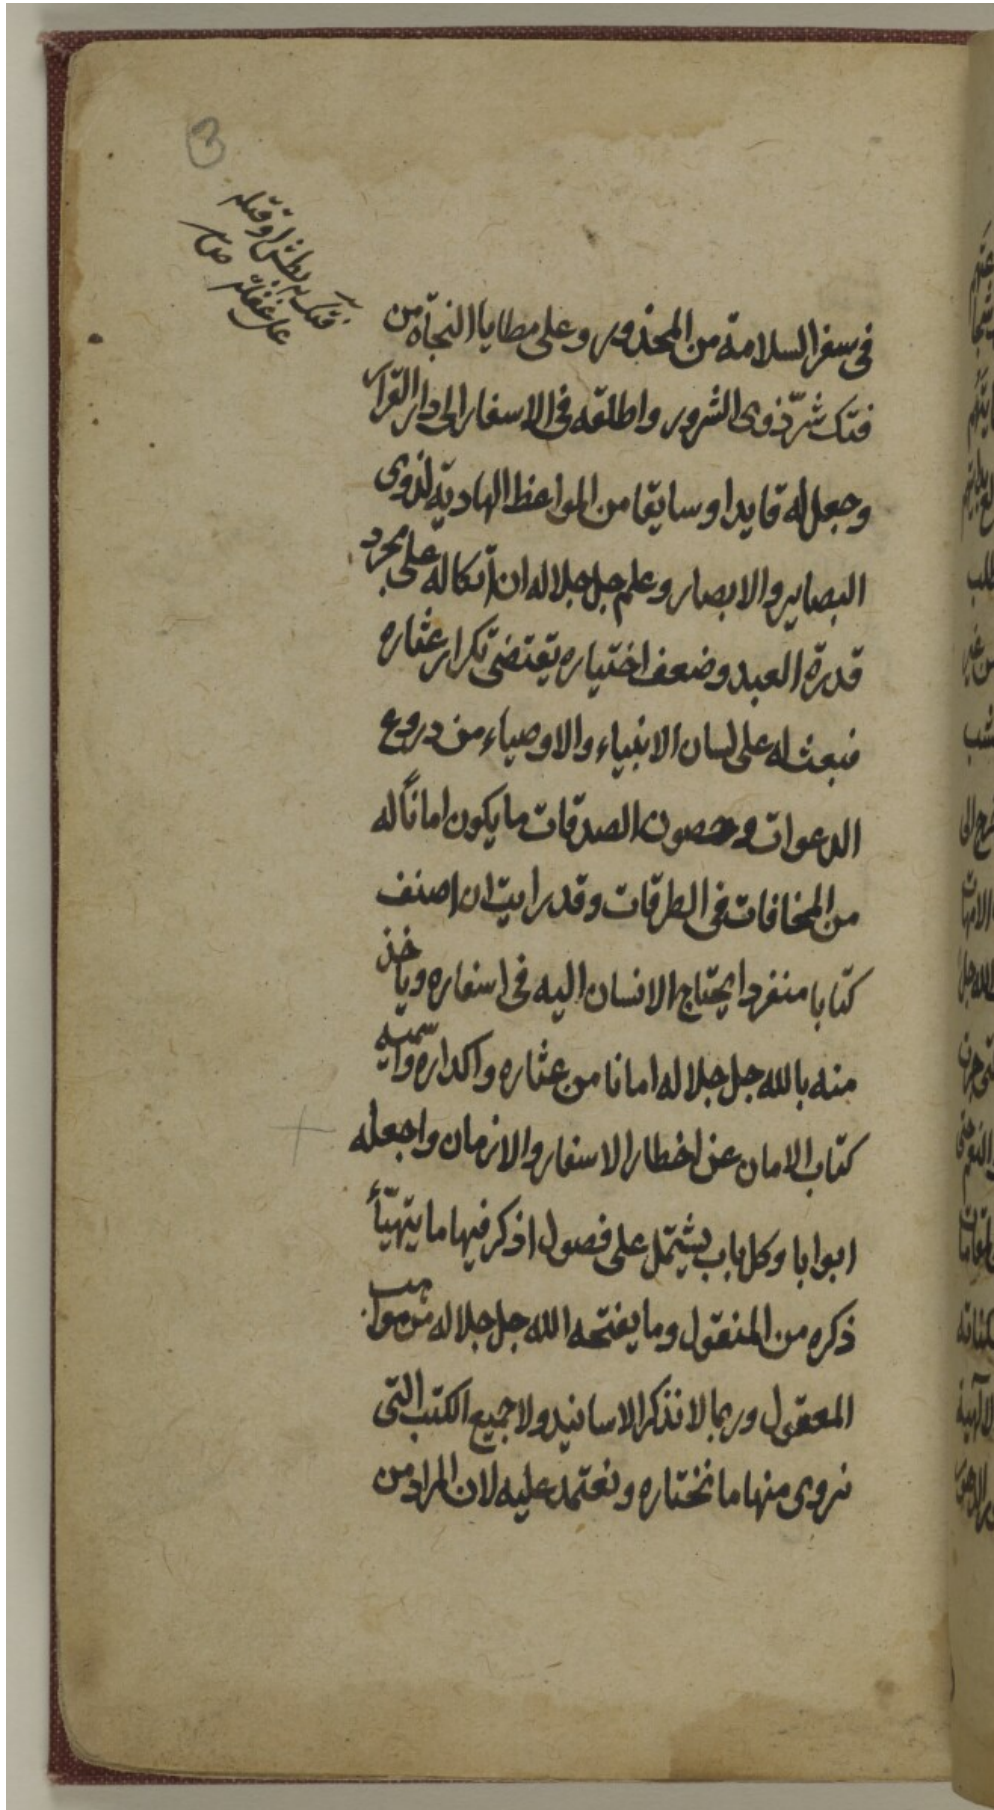 3
فتك به بطش او قتله
على غفلة ص
فى سفر السلامة من المحذور وعلى مطايا النجاة من
فتك شرّ ذوى الشرور واطلقه فى الاسفار الى دار القرار
وجعل له قايدا وسايقا من المواعظ الهادية لذوى
البصاير والابصار وعلم جل جلاله ان اتّكاله على مجرد
قدرة العبد وضعف اختياره يقتضى تكرار عثاره
فبعث له على لسان الانبياء والاوصياء من دروع
الدعوات وحصون الصدقات ما يكون اماناً له
من المخافات فى الطرقات وقد رايت ان اصنف
كتابا منفردا يحتاج الانسان اليه فى اسفاره وياخذ
منه بالله جل جلاله امانا من عثاره واكداره واسميه
كتاب الامان عن اخطار الاسفار والازمان واجعله
ابوابا وكل باب يشتمل على فصول اذكر فيها ما يتهيّأ
ذكره من المنقول وما يفتحه الله جل جلاله من مواهب
المعقول وربما لا نذكر الاسانيد ولا جميع الكتب التى
نروى منها ما نختاره ونعتمد عليه لان المراد من